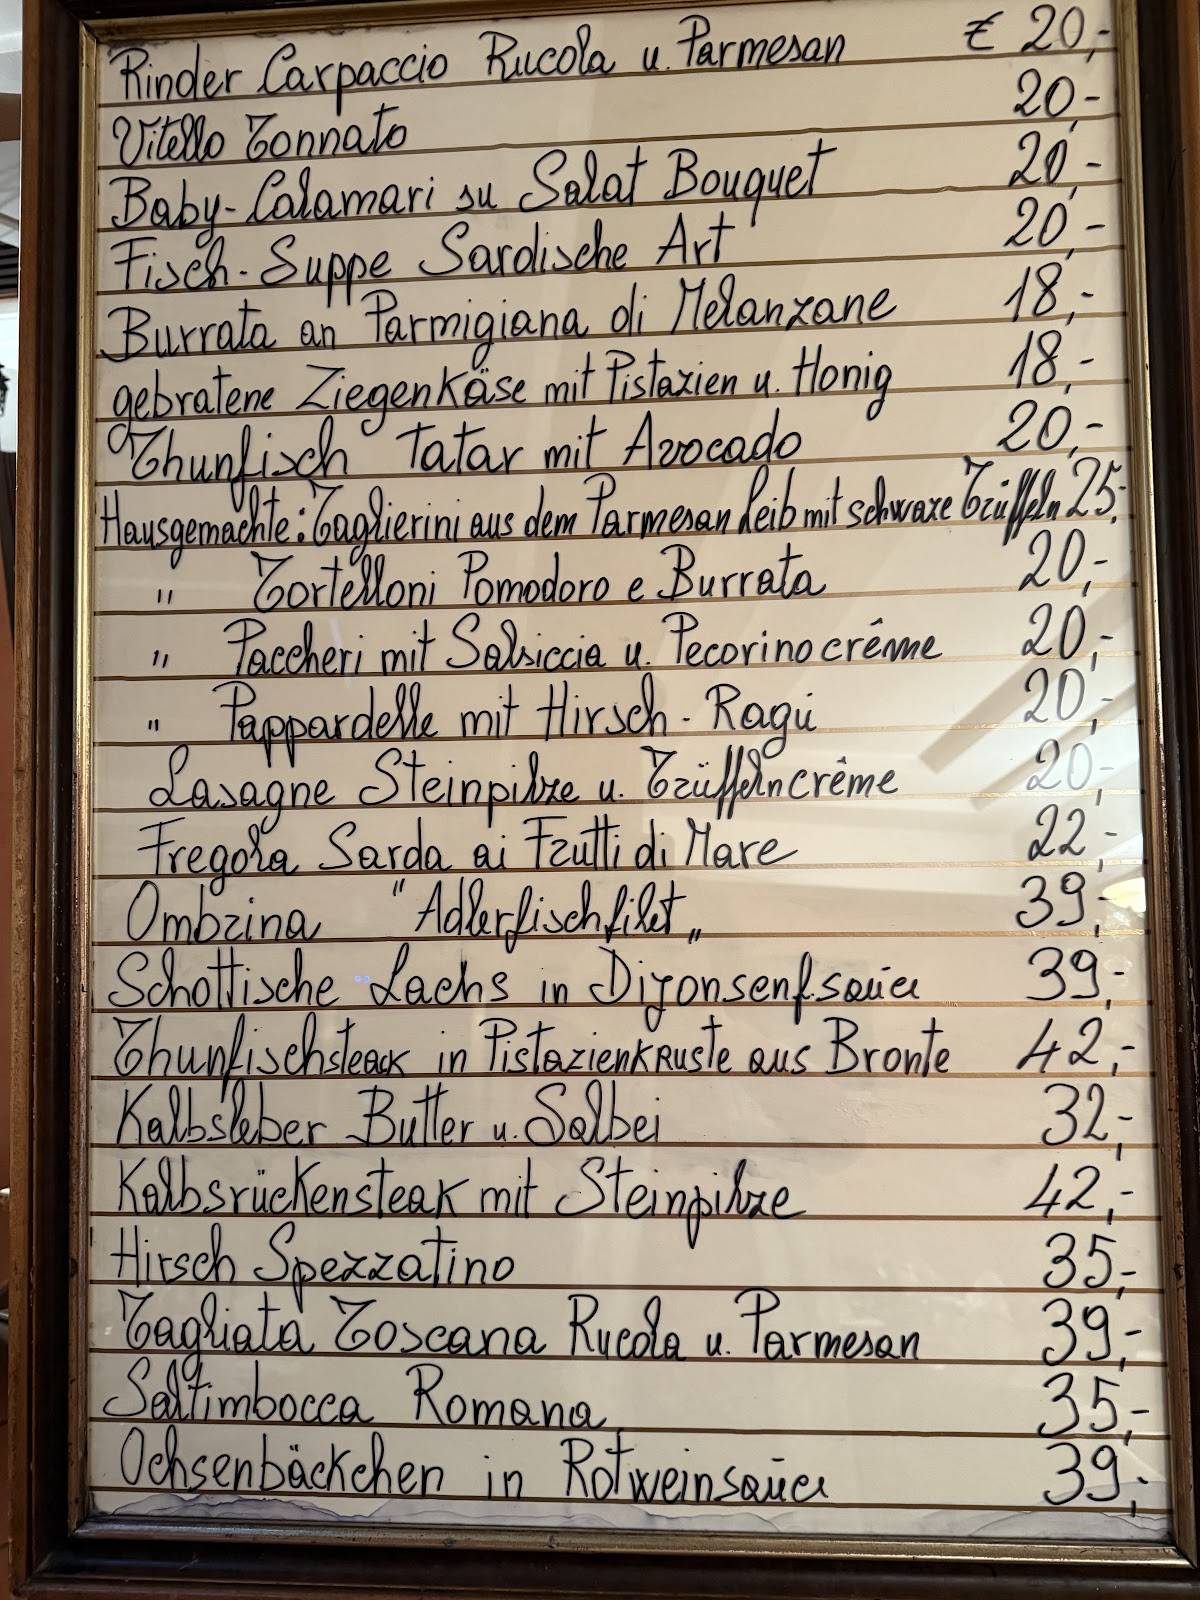 Rinder Carpaccio Rucola u. Parmesan € 20,-
Vitello Tonnato 20,-
Baby-Calamari su Salat Bouquet 20,-
Fisch-Suppe Sardische Art 20,-
Burrata an Parmigiana di Melanzane 18,-
gebratene Ziegenkäse mit Pistazien u. Honig 18,-
Thunfisch Tatar mit Avocado 20,-
Hausgemachte: Taglierini aus dem Parmesan Leib mit schwaze Trüffeln 25,-
" Tortelloni Pomodoro e Burrata 20,-
" Paccheri mit Salsiccia u. Pecorinocrême 20,-
" Pappardelle mit Hirsch-Ragú 20,-
Lasagne Steinpilze u. Trüffelncrême 20,-
Fregola Sarda ai Frutti di Mare 22,-
Ombrina "Adlerfischfilet„ 39,-
Schottische Lachs in Dijonsenfsauce 39,-
Thunfischsteack in Pistazienkruste aus Bronte 42,-
Kalbsleber Butter u. Salbei 32,-
Kalbsrückensteak mit Steinpilze 42,-
Hirsch Spezzatino 35,-
Tagliata Toscana Rucola u. Parmesan 39,-
Saltimbocca Romana 35,-
Ochsenbäckchen in Rotweinsauce 39,-